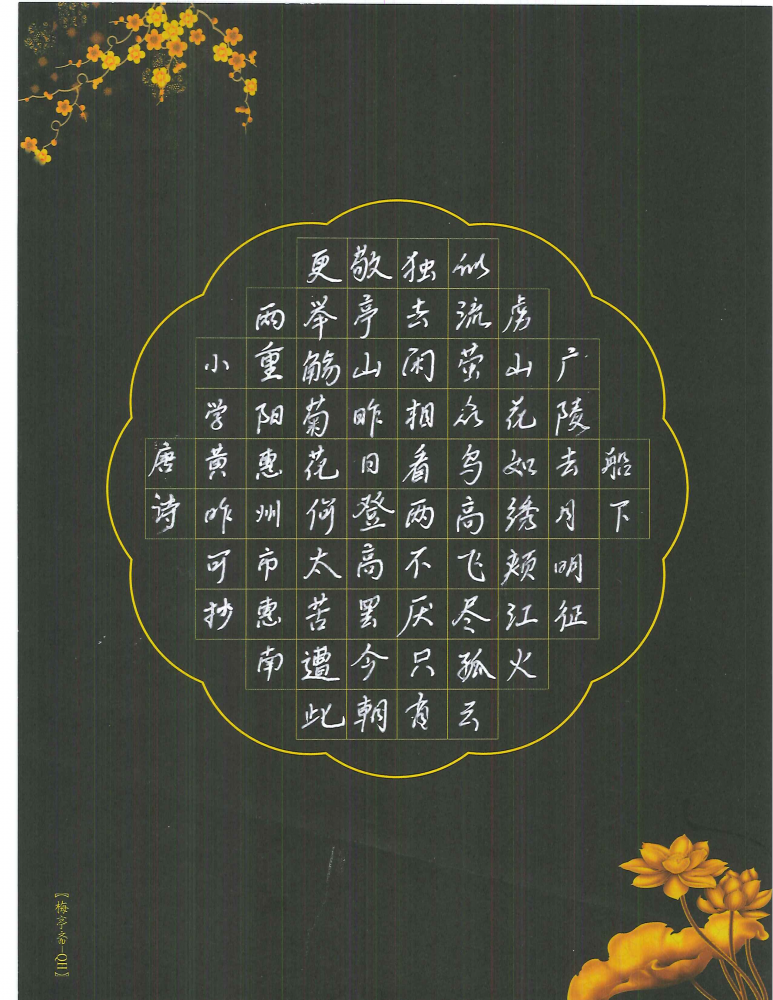 船下
广陵去月明征
虏山花如绣颊江火
似流萤众鸟高飞尽孤云
独去闲相看两不厌只有
敬亭山昨日登高罢今朝
更举觞菊花何太苦遭此
两重阳惠州市惠南
小学黄昨可抄
唐诗
【梅亭斋—QII】